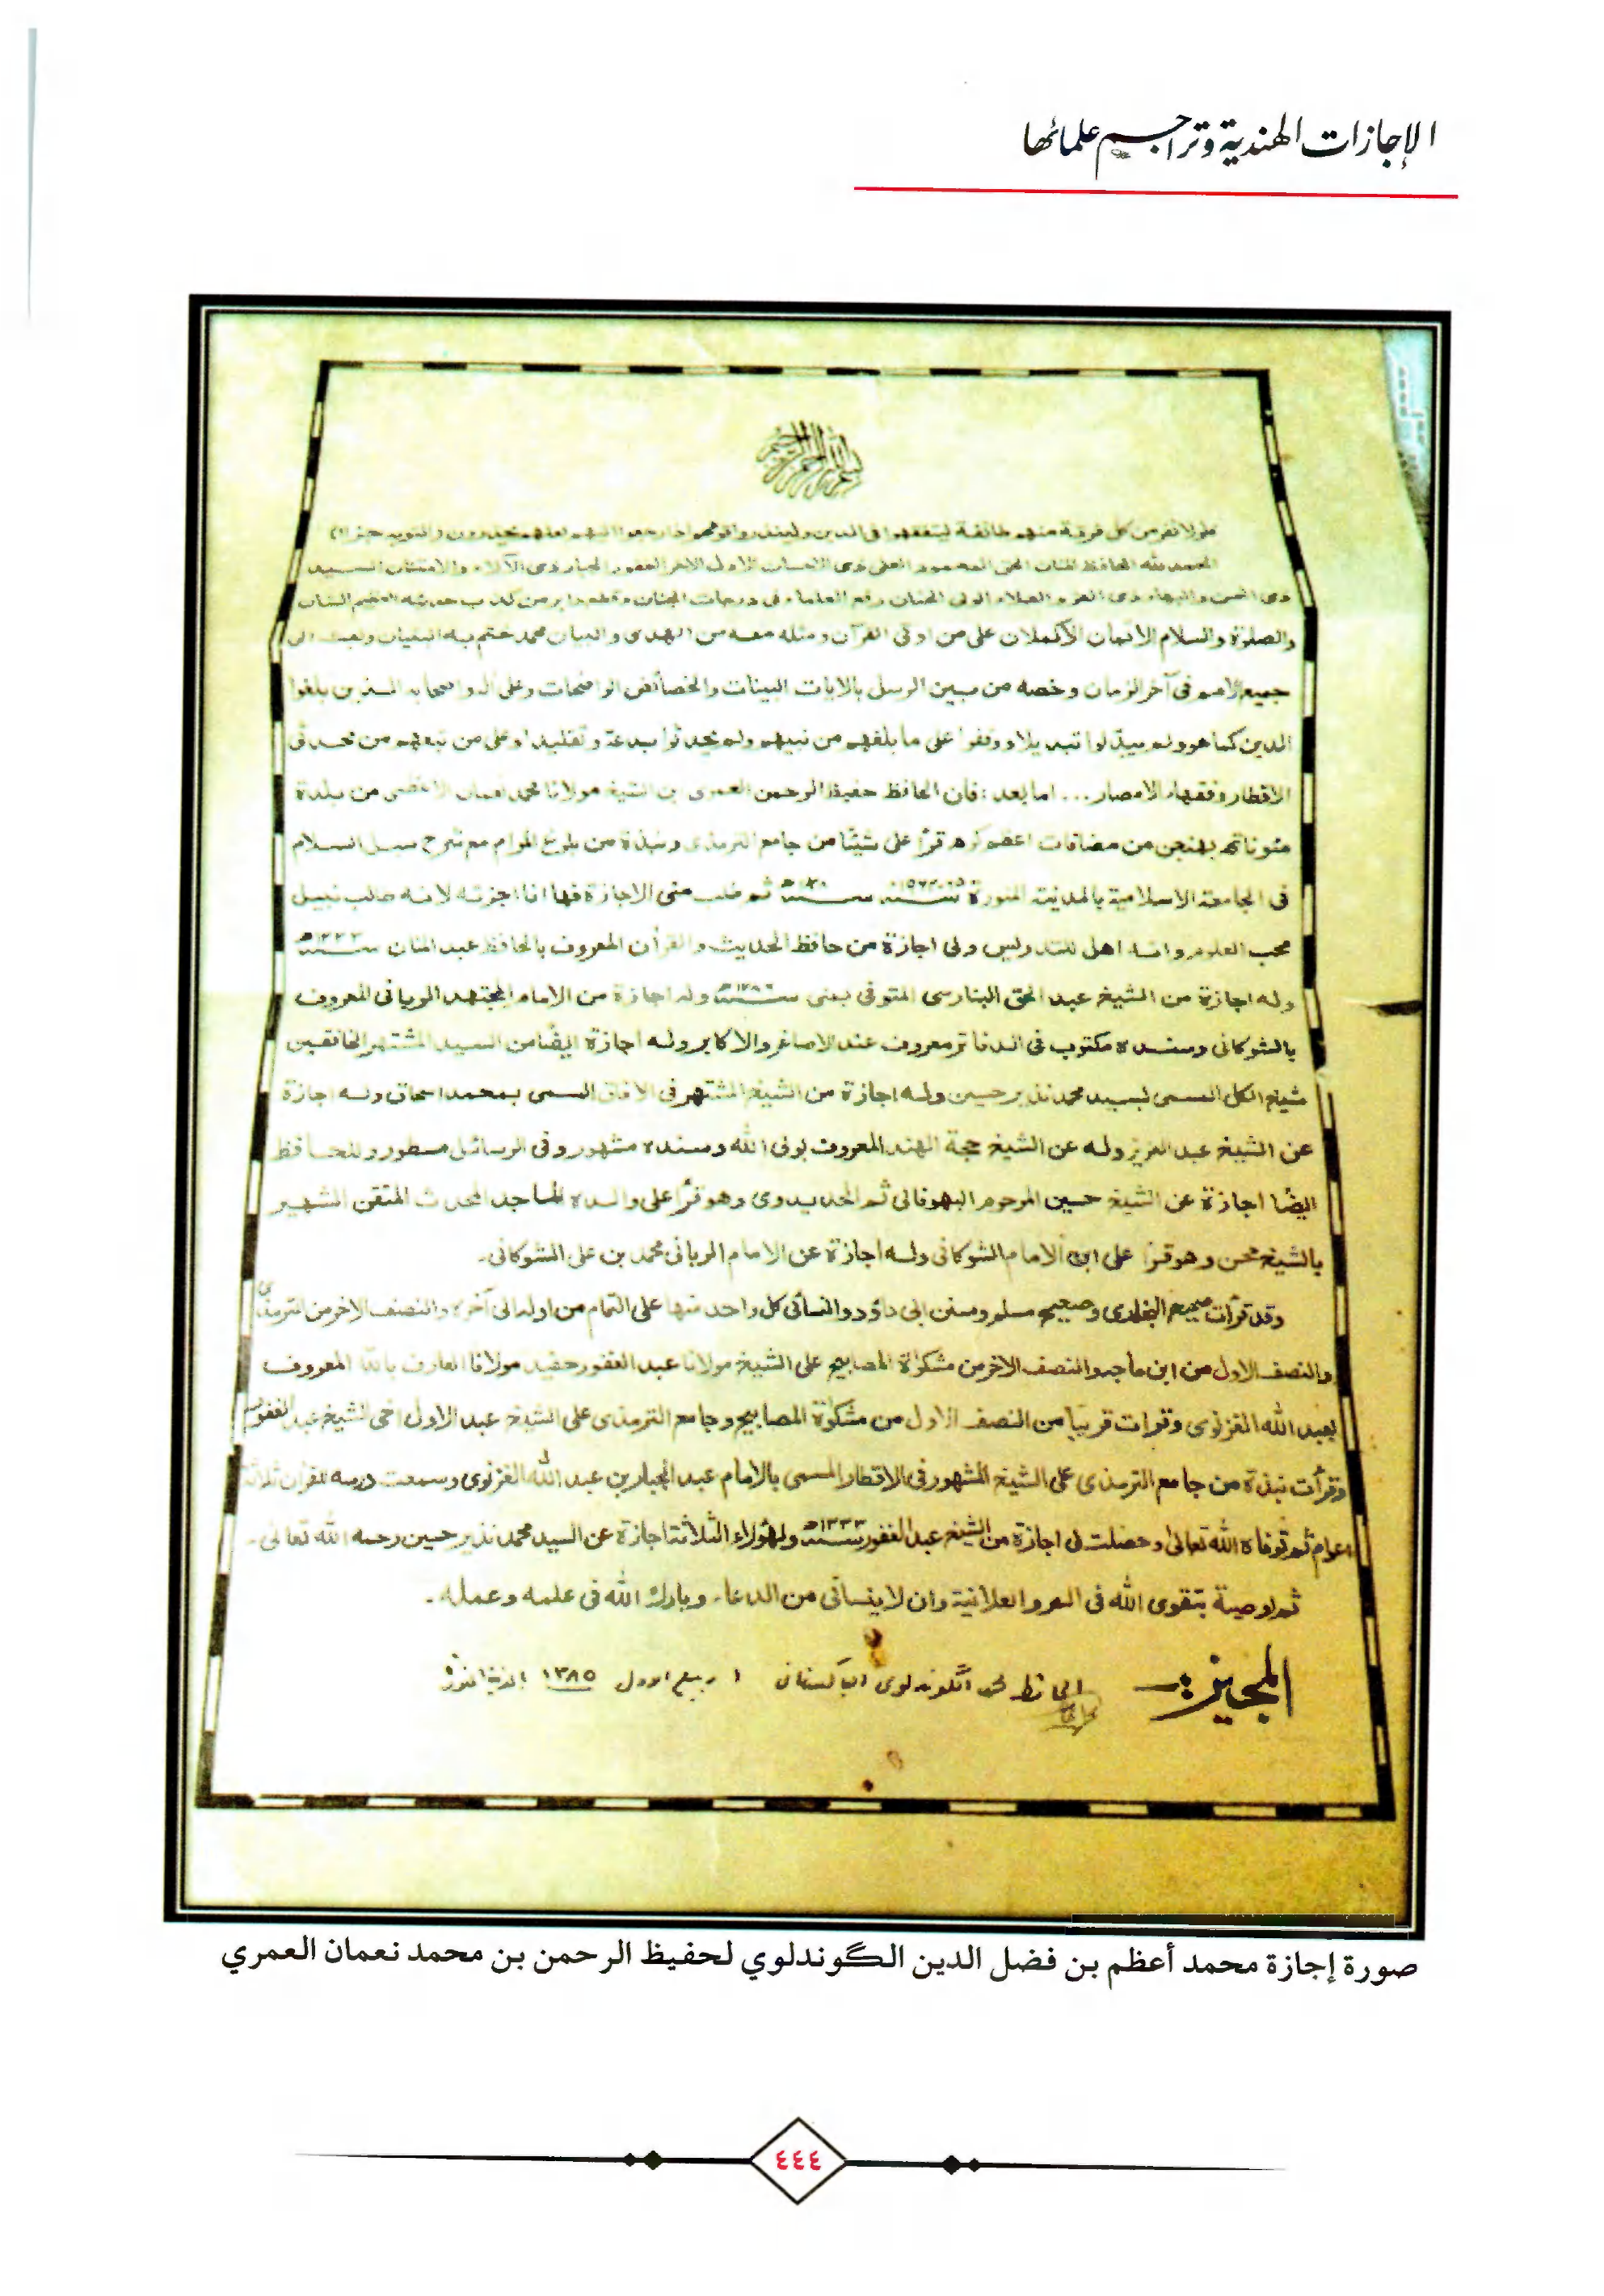 الإجازات الهندية وتراجيم علمائها
بسم الله الرحمن الرحيم
فلولا نفر من كل فرقة منهم طائفة ليتفقهوا فى الدين ولينذروا قومهم اذا رجعوا اليهم لعلهم يحذرون
الحمد لله الحافظ المنان الحى
والصلوة والسلام الاتمان الأكملان على من اوتى القرآن ومثله معه من الهدى والبيان محمد ختم به
جميع الامم فى آخر الزمان وخصه من بين الرسل بالايات البينات والخصائص الواضحات وعلى آله واصحابه الذين بلغوا
الدين كما هو ولم يبدلوا تبديلا ووقفوا على ما بلغهم من نبيهم ولم يحدثوا بدعة وتقليدا وعلى من تبعهم من محدثى
الاقطار وفقهاء الامصار ... اما بعد : فان الحافظ حفيظ الرحمن العمرى بن الشيخ مولانا محمد نعمان الاعظمى من بلدة
مئوناتهـ بهنجن من مضافات اعظم گرهـ قرأ على شيئا من جامع الترمذى ونبذة من بلوغ المرام مع شرح سبل السلام
فى الجامعة الاسلامية بالمدينة المنورة ثم طلب منى الاجازة فها انا اجزته لانه طالب نبيل
محب العلوم وانه اهل للتدريس ولى اجازة من حافظ الحديث والقرآن المعروف بالحافظ عبد المنان سنة ١٣٣٣هـ
وله اجازة من الشيخ عبد الحق البنارسى المتوفى بمنى وله اجازة من الامام المجتهد الربانى المعروف
بالشوكانى وسنده مكتوب فى الدفاتر معروف عند الاصاغر والاكابر وله اجازة ايضا من السيد المشتهر الخافقين
شيخ الكل المسمى لسيد محمد نذير حسين وله اجازة من الشيخ المشتهر فى الافاق المسمى بمحمد اسحاق وله اجازة
عن الشيخ عبد العزيز وله عن الشيخ حجة الهند المعروف بولى الله وسنده مشهور وفى الرسائل مسطور وللحافظ
ايضا اجازة عن الشيخ حسين المرحوم البهوفالى ثم الحديدوى وهو قرأ على والده الماجد المحدث المتقن الشهير
بالشيخ محسن وهو قرأ على ابن الامام الشوكانى وله اجازة عن الامام الربانى محمد بن على الشوكانى.
وقد قرأت صحيح البخارى وصحيح مسلم وسنن ابى داؤد والنسائى كل واحد منها على التمام من اوله الى آخره والنصف الاخر من الترمذى
والنصف الاول من ابن ماجه والنصف الاخر من مشكوٰة المصابيح على الشيخ مولانا عبد الغفور حفيد مولانا العارف بالله المعروف
بعبد الله الغزنوى وقرات قريبا من النصف الاول من مشكوٰة المصابيح وجامع الترمذى على الشيخ عبد الاول اخى الشيخ عبد الغفور
وقرأت نبذة من جامع الترمذى على الشيخ المشهور فى الاقطار المسمى بالامام عبد الجبار بن عبد الله الغزنوى وسمعت درسه للقران ثلاثة
اعوام ثم توفاه الله تعالىٰ وحصلت لى اجازة من الشيخ عبد الغفور سنة ١٣٣٣هـ ولهؤلاء الثلاثة اجازة عن السيد محمد نذير حسين رحمه الله تعالى -
ثم اوصيه بتقوى الله فى السر والعلانية وان لا ينسانى من الدعاء. وبارك الله فى علمه وعمله.
المجيز:- الحافظ محمد الگوندلوى الپاكستانى ١ ربيع الاول ١٣٨٥ المدينة المنورة
صورة إجازة محمد أعظم بن فضل الدين الگوندلوي لحفيظ الرحمن بن محمد نعمان العمري
٤٤٤